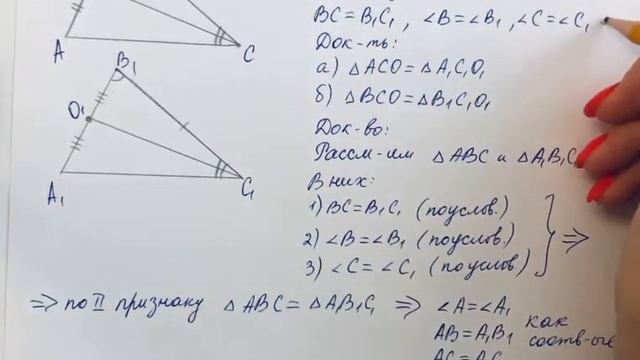 BC=B₁C₁, ∠B=∠B₁, ∠C=∠C₁
Док-ть:
а) △ACO=△A₁C₁O₁
б) △BCO=△B₁C₁O₁
Док-во:
Рассм-им △ABC и △A₁B₁C₁
В них:
1) BC=B₁C₁ (по услов.)
2) ∠B=∠B₁ (по услов.)
3) ∠C=∠C₁ (по услов.)
⇒
⇒ по II признаку △ABC=△A₁B₁C₁ ⇒ ∠A=∠A₁
AB=A₁B₁ как
соотв-ые
AC=A₁C₁
A
C
B₁
O₁
A₁
C₁